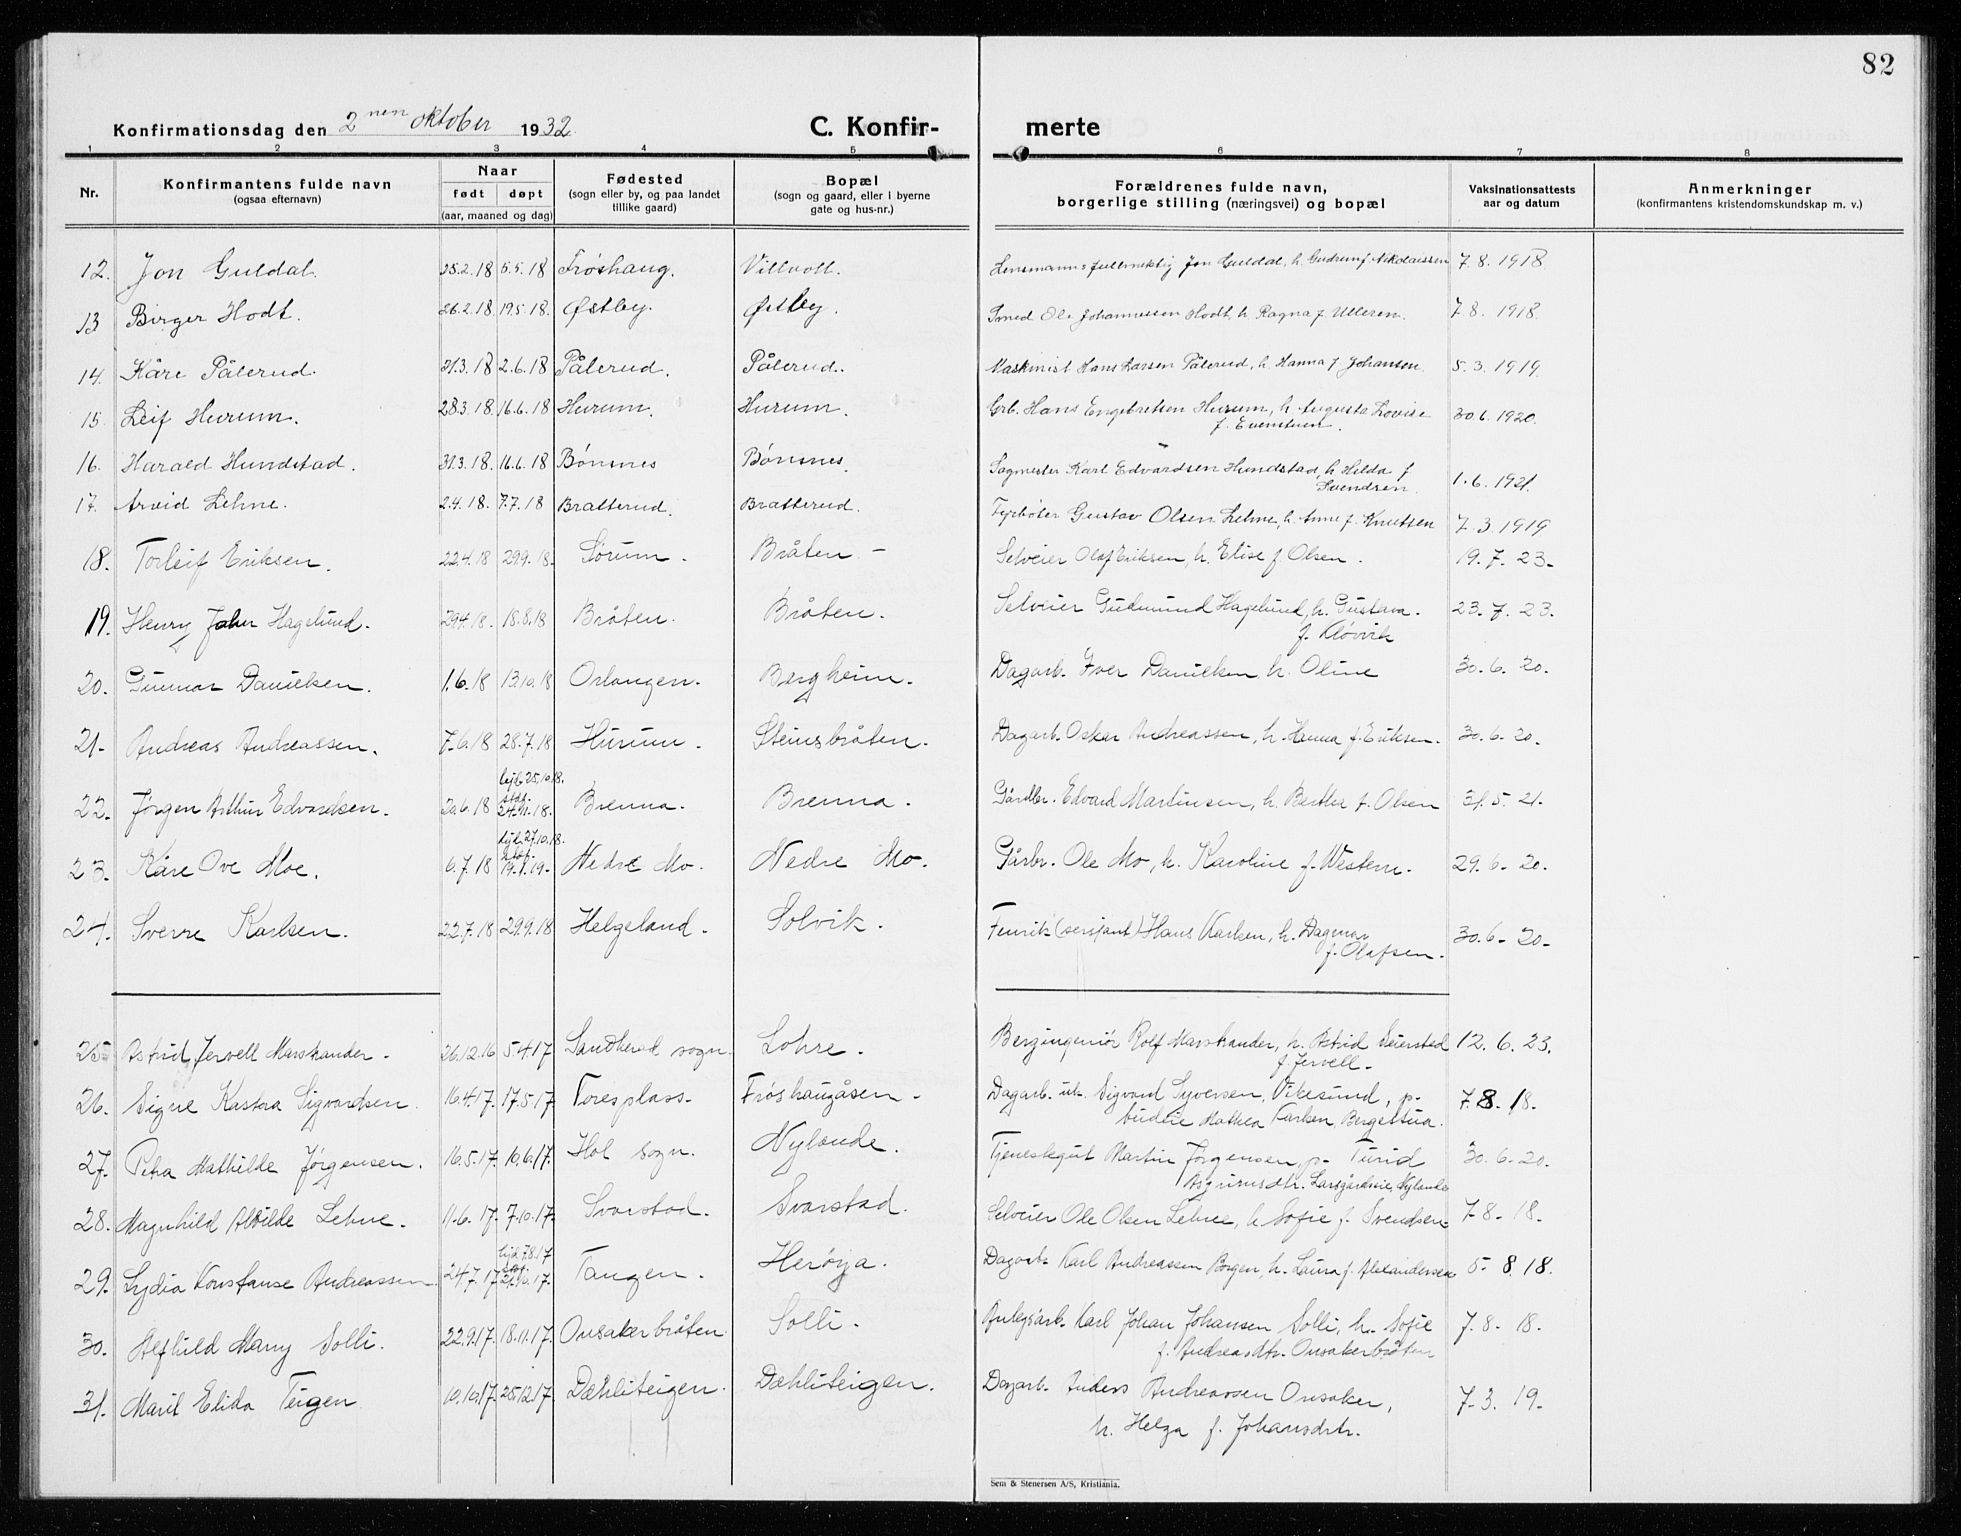 82
Konfirmationsdag den 2nen oktober 1932 C. Konfir- merte
1 2 3 4 5 6 7 8
Nr. Konfirmantens fulde navn (ogsaa efternavn) Naar født døpt (aar, maaned og dag) Fødested (sogn eller by, og paa landet tillike gaard) Bopæl (sogn og gaard, eller i byerne gate og hus-nr.) Forældrenes fulde navn, borgerlige stilling (næringsvei) og bopæl Vaksinationsattests aar og datum Anmerkninger (konfirmantens kristendomskundskap m. v.)
12. Jon Guldal. 25.2.18 5.5.18 Frøshaug. Villvoll. Lensmannsfullmektig Jon Guldal, h. Gudrun f. Nikolaissen 7.8.1918
13 Birger Hodt. 26.2.18. 19.5.18. Østby. Østby. Smed Ole Johannessen Hodt, h. Ragna f. Ulleren. 7.8.1918.
14. Kåre Pålerud. 21.3.18 2.6.18 Pålerud. Pålerud. Maskinist Hans Larsen Pålerud, h. Hanna f. Johansen. 5.3.1919.
15. Leif Hurum. 28.3.18. 16.6.18 Hurum. Hurum. Grb. Hans Engebretsen Hurum, h. Augusta Lovise 30.6.1920.
f. Evenstuen.
16. Harald Hundstad. 31.3.18. 16.6.18 Bønsnes Bønsnes. Sagmester Karl Edvardsen Hundstad, h. Hilda f. 1.6.1921.
Svendsen.
17. Arvid Lehne. 2.4.18. 7.7.18 Bratterud. Bratterud. Fyrbøter Gustav Olsen Lehne, h. Anne f. Knutsen 7.3.1919
18. Torleif Eriksen. 22.4.18 29.9.18. Sørum. Bråten - Selveier Olaf Eriksen, h. Elise f. Olsen. 19.7.23-
19. Henry John Hagelund. 29.4.18. 18.8.18 Bråten. Bråten. Selveier Gudmund Hagelund, h. Gustava. 23.7.23.
f. Kløvvik
20. Gunnar Danielsen. 1.6.18 13.10.18 Orlangen. Bergheim. Dagarb. Iver Danielsen h. Oline 30.6.20.
21- Andreas Andreassen. 7.6.18 28.7.18 Hurum. Steinsbråten. Dagarb. Oskar Andreassen, h. Hanna f. Eriksen. 30.6-20.
hjd. 25.10.18.
22. Jørgen Arthur Edvardsen. 20.6.18 stdf. 24.11.18. Brenna. Brenna. Gårdbr. Edvard Martinsen, h. Berthe f. Olsen 31.5.21.
hjd. 27.10.18.
23. Kåre Ove Moe. 6.7.18 stdf. 19.1.19- Nedre Mo. Nedre Mo. Gårbr. Ole Mo, h. Karoline f. Western. 29.6-20.
24. Sverre Karlsen. 22.7.18 29.9.18 Helgeland. Solvik. Fenrik (serjant) Hans Karlsen, h. Dagmar 30.6-20-
f. Olafsen.
25 Astrid Jervell Marstrander - 26.12.16 5.4.17 Sandherad sogn. Lohre. Bergingeniør Rolf Marstrander, h. Astrid Seierstad 12.6.23.
f. Jervell.
26. Signe Kastora Sigvardsen. 16.4.17. 17.5.17. Toresplass. Frøshaugåsen - Dagarb. uk. Sigvard Syversen, Vikesund, p- 7.8.18.
budeie Mathea Karlsen, Bergestua.
27. Petra Mathilde Jørgensen. 16.5.17. 10.6.17. Hol sogn. Nylande. Tjenestegut Martin Jørgensen, p- Turid 30.6-20.
Asgrimsdtr. Larsgårdseie, Nylande
28. Magnhild Alvilde Lehne. 11.6.17. 7.10.17. Svarstad. Svarstad. Selveier Ole Olsen Lehne, h. Sofie f. Svendsen 7-8-18.
hjd. 7.8.17
29. Lydia Konstanse Andreassen. 24.7.17 stdf. 21.10.17. Tangen. Herøya. Dagarb- Karl Andreassen Borgen, h. Laura f. Alexandersen 5-8.18.
30. Alfhild Mary Solli. 22.9.17. 18.11.17. Onsakerbråten. Solli. Anlegsarb. Karl Johan Johansen Solli, h. Sofie 7-8-18.
f. Andreasdtr. Onsakerbråten
31. Maril Elida Teigen 10.10.17. 25.12.17. Dæhliteigen. Dæhliteigen. Dagarb. Anders Andreassen Onsaker, 7-3.19-
h. Helga f. Johansdtr.
Sem & Stenersen A/S, Kristiania.